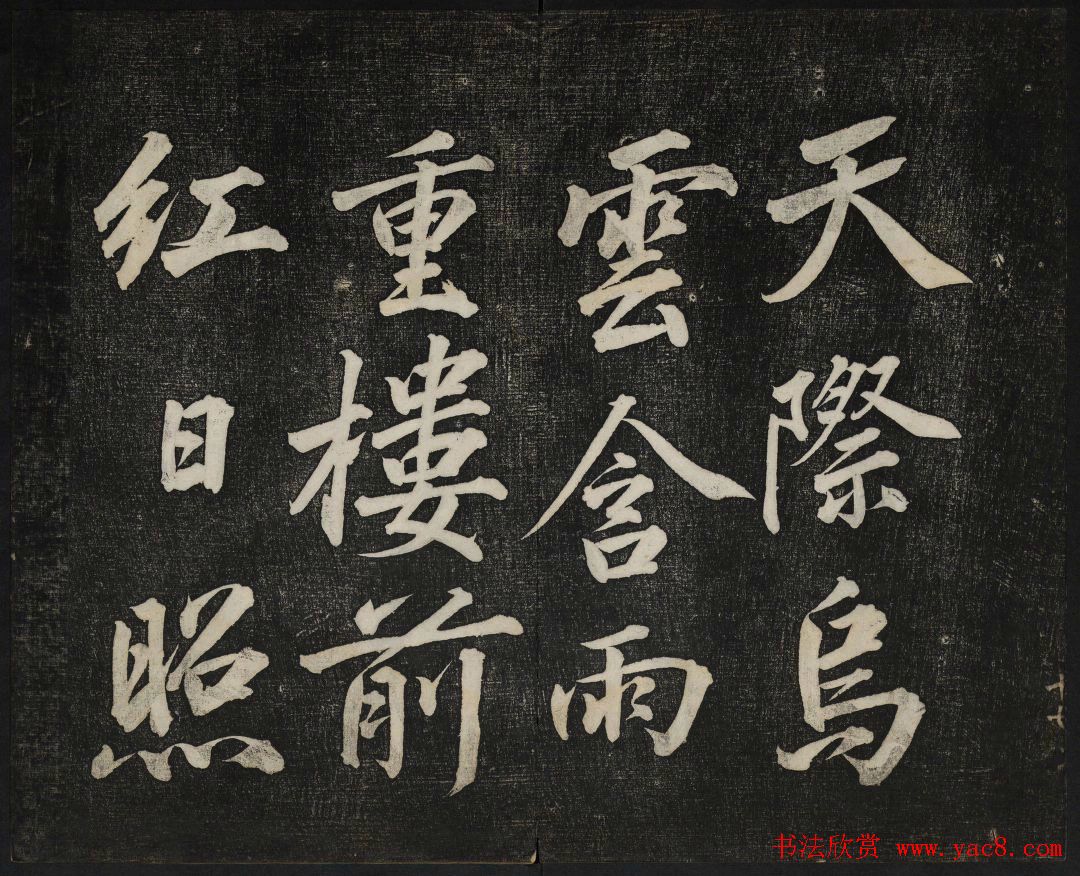 天際烏
雲含雨
重樓前
紅日照
书法欣赏 www.yac8.com